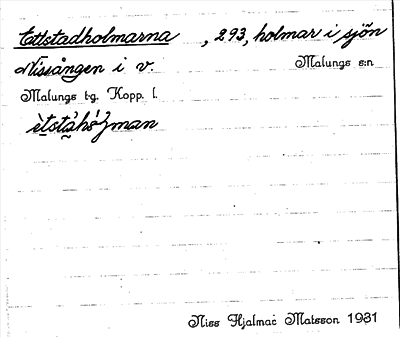 Ettstadholmarna , 293, holmar i sjön
Nissången i v. Malungs s:n
Malungs t-g. Kopp. l.
Niss Hjalmar Matsson 1931